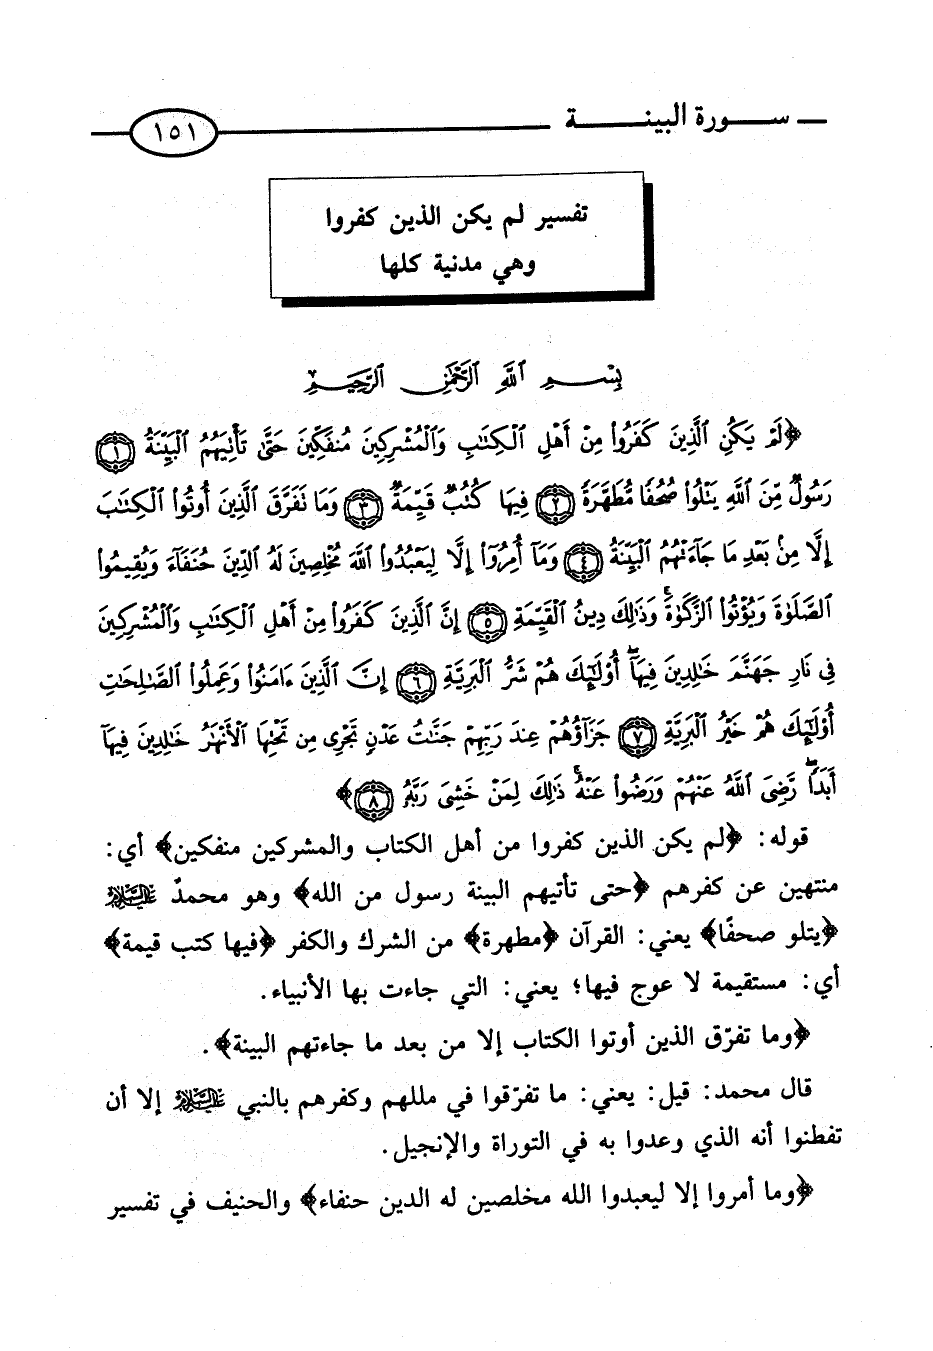 ســـورة البينــــــة
١٥١
تفسير لم يكن الذين كفروا
وهي مدنية كلها
بِسْمِ ٱللَّهِ ٱلرَّحْمَٰنِ ٱلرَّحِيمِ
﴿لَمْ يَكُنِ ٱلَّذِينَ كَفَرُوا۟ مِنْ أَهْلِ ٱلْكِتَٰبِ وَٱلْمُشْرِكِينَ مُنفَكِّينَ حَتَّىٰ تَأْتِيَهُمُ ٱلْبَيِّنَةُ ١
رَسُولٌ مِّنَ ٱللَّهِ يَتْلُوا۟ صُحُفًا مُّطَهَّرَةً ٢ فِيهَا كُتُبٌ قَيِّمَةٌ ٣ وَمَا تَفَرَّقَ ٱلَّذِينَ أُوتُوا۟ ٱلْكِتَٰبَ
إِلَّا مِنۢ بَعْدِ مَا جَآءَتْهُمُ ٱلْبَيِّنَةُ ٤ وَمَآ أُمِرُوٓا۟ إِلَّا لِيَعْبُدُوا۟ ٱللَّهَ مُخْلِصِينَ لَهُ ٱلدِّينَ حُنَفَآءَ وَيُقِيمُوا۟
ٱلصَّلَوٰةَ وَيُؤْتُوا۟ ٱلزَّكَوٰةَ ۚ وَذَٰلِكَ دِينُ ٱلْقَيِّمَةِ ٥ إِنَّ ٱلَّذِينَ كَفَرُوا۟ مِنْ أَهْلِ ٱلْكِتَٰبِ وَٱلْمُشْرِكِينَ
فِى نَارِ جَهَنَّمَ خَٰلِدِينَ فِيهَآ ۚ أُو۟لَٰٓئِكَ هُمْ شَرُّ ٱلْبَرِيَّةِ ٦ إِنَّ ٱلَّذِينَ ءَامَنُوا۟ وَعَمِلُوا۟ ٱلصَّٰلِحَٰتِ
أُو۟لَٰٓئِكَ هُمْ خَيْرُ ٱلْبَرِيَّةِ ٧ جَزَآؤُهُمْ عِندَ رَبِّهِمْ جَنَّٰتُ عَدْنٍ تَجْرِى مِن تَحْتِهَا ٱلْأَنْهَٰرُ خَٰلِدِينَ فِيهَآ
أَبَدًا ۖ رَّضِىَ ٱللَّهُ عَنْهُمْ وَرَضُوا۟ عَنْهُ ۚ ذَٰلِكَ لِمَنْ خَشِىَ رَبَّهُۥ ٨﴾
قوله: ﴿لم يكن الذين كفروا من أهل الكتاب والمشركين منفكين﴾ أي:
منتهين عن كفرهم ﴿حتى تأتيهم البينة رسول من الله﴾ وهو محمدٌ عليه السلام
﴿يتلو صحفًا﴾ يعني: القرآن ﴿مطهرة﴾ من الشرك والكفر ﴿فيها كتب قيمة﴾
أي: مستقيمة لا عوج فيها؛ يعني: التي جاءت بها الأنبياء.
﴿وما تفرّق الذين أوتوا الكتاب إلا من بعد ما جاءتهم البينة﴾.
قال محمد: قيل: يعني: ما تفرّقوا في مللهم وكفرهم بالنبي عليه السلام إلا أن
تفطنوا أنه الذي وعدوا به في التوراة والإنجيل.
﴿وما أمروا إلا ليعبدوا الله مخلصين له الدين حنفاء﴾ والحنيف في تفسير